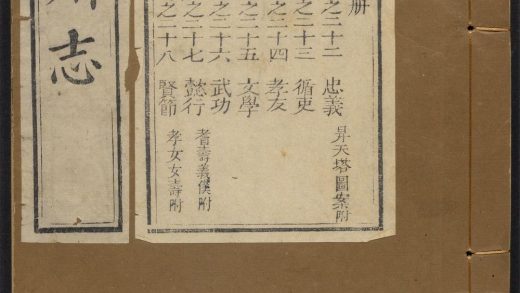 册
之二十二 忠義 昇天塔圖案附
之二十三 循吏
之二十四 孝友
之二十五 文學
之二十六 武功
之二十七 懿行 耆壽義僕附
之二十八 賢節 孝女女壽附
志